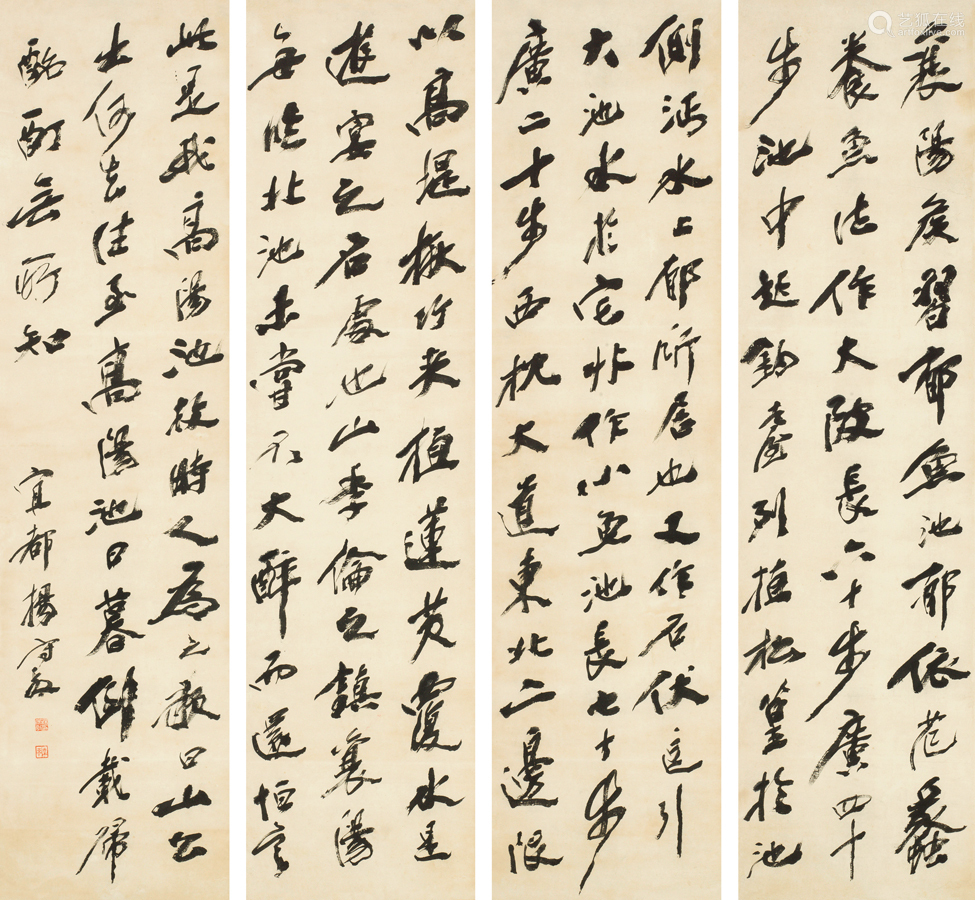 襄陽侯習郁魚池郁依范蠡
養魚法作大陂長六十步廣四十
步池中起釣臺列植松篁於池
側沔水上郁所居也又作石伏逗引
大池水於宅北作小魚池長七十步
廣二十步西枕大道東北二邊限
以高堤楸竹夾植蓮芡覆水是
遊宴之名處也山季倫之鎮襄陽
每臨此池未嘗不大醉而還恒言
此是我高陽池故時人為之歌曰山公
出何去往至高陽池日暮倒載歸
酩酊無所知
宜都楊守敬
艺狐在线
artfoxlive.com